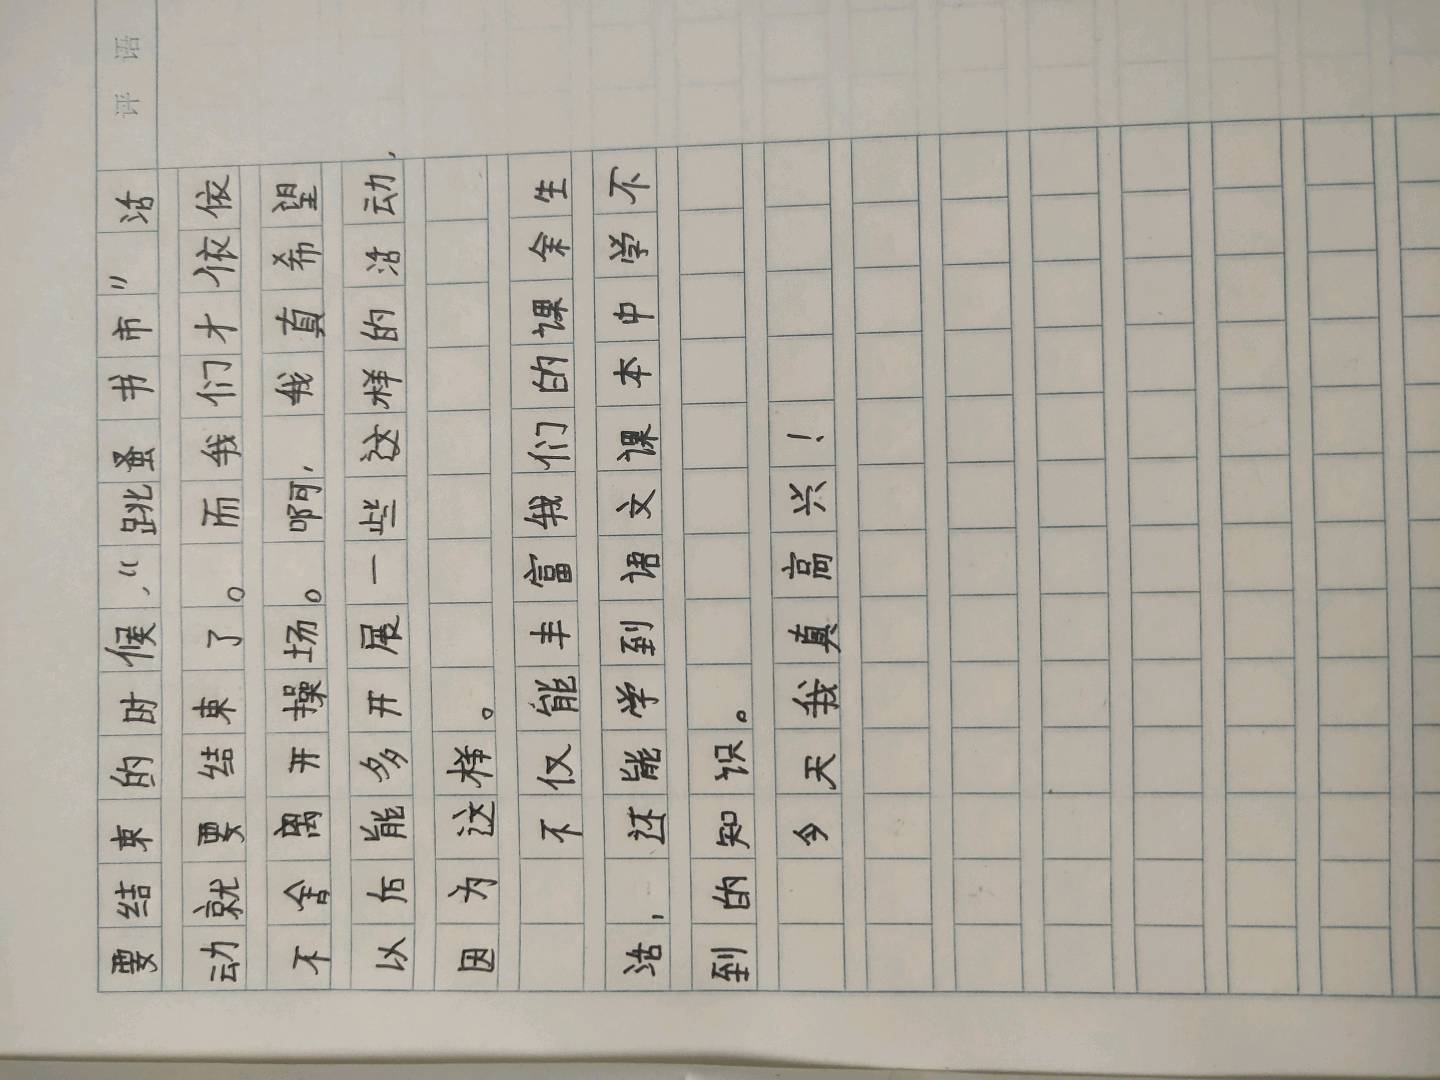 评语
要结束的时候，“跳蚤书市”活
动就要结束了。而我们才依依
不舍离开操场。啊，我真希望
以后能多开展一些这样的活动，
因为这样。
不仅能丰富我们的课余生
活，还能学到语文课本中学不
到的知识。
今天我真高兴！